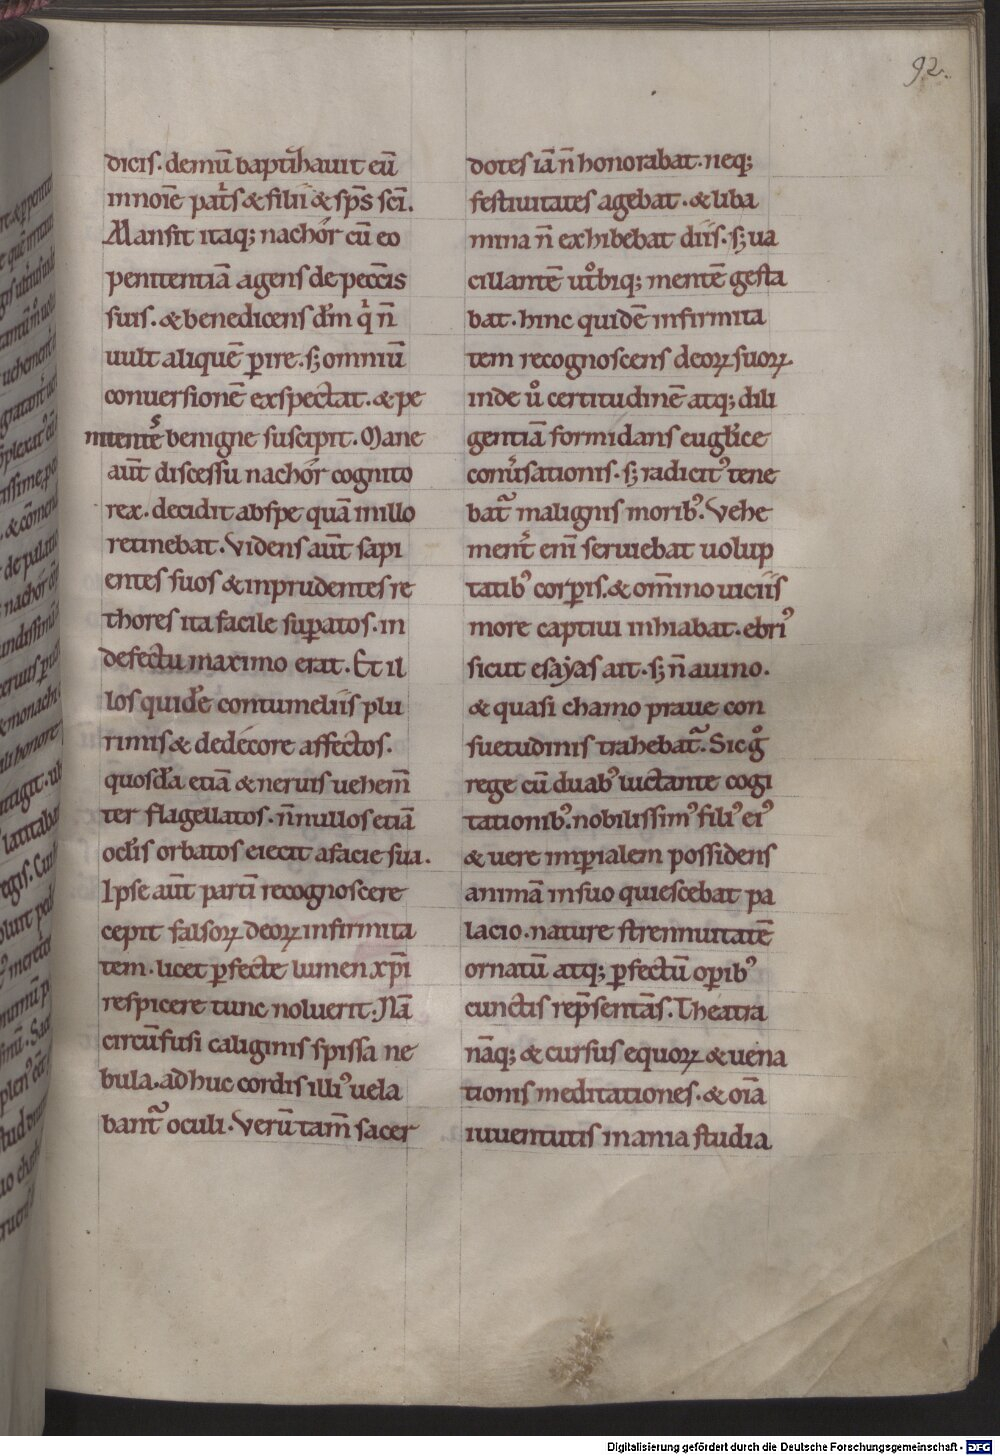 92.
dicis. demū baptizauit eū
in noīe pat͛s & filii & sp̄s sc̄i.
Mansit itaq; nachor cū eo
penitentiā agens de pecc̄is
suis. & benedicens dm̄ qͥ n̄
uult aliquē ꝑire. sꝫ omniū
conuersionē exspectat. & pe
nitentēs benigne suscipit. Mane
aūt discessu nachor cognito
rex. decidit ab spe quā in illo
retinebat. Videns aūt sapi
entes suos & inprudentes re
thores ita facile suꝑatos. in
defectu maximo erat. Et il
los quidē contumeliis plu
rimis & dedecore affectos.
quosdā etiā & neruis uehem̄
ter flagellatos. n̄nullos etiā
oclis orbatos eiecit a facie sua.
Ipse aūt partī recognoscere
cepit falsoꝝ deoꝝ infirmita
tem. licet ꝑfecte lumen xp̄i
respicere tunc noluerit. Nā
circūfusi caliginis spissa ne
bula. adhuc cordis illiꝰ uela
bant᷑ oculi. Verūtam̄ sacer
dotes iā n̄ honorabat. neq;
festiuitates agebat. & liba
mina n̄ exhibebat diis. sꝫ ua
cillantē ut͛biq; mentē gesta
bat. hinc quidē infirmita
tem recognoscens deoꝝ suoꝝ.
inde uͦ certitudinē atq; dili
gentiā formidans euglice
conu͛sationis. sꝫ radicitꝰ tene
bat᷑ malignis moribꝰ. Vehe
ment͛ enī seruiebat uolup
tatibꝰ corꝑis. & om̄ino uiciis
more captiui inhiabat. ebriꝰ
sicut esayas ait. sꝫ n̄ a uino.
& quasi chamo praue con
suetudinis trahebat᷑. Sic gͦ
rege cū duabꝰ luctante cogi
tationibꝰ. nobilissimꝰ filiꝰ eiꝰ
& uere imꝑialem possidens
animā in suo quiescebat pa
lacio. nature strennuitatē
ornatū atq; ꝑfectū oꝑibꝰ
cunctis rep̄sentās. Theatra
nāq; & cursus equoꝝ & uena
tionis meditationes. & oīa
iuuentutis inania studia
Digitalisierung gefördert durch die Deutsche Forschungsgemeinschaft - DFG